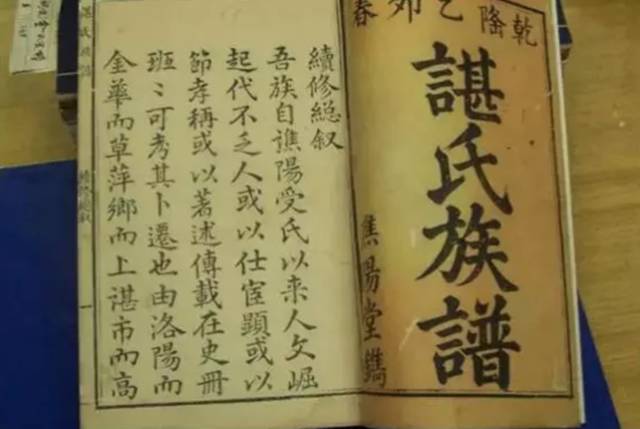 乾隆乙夘春
諶氏族譜
焦陽堂鐫
續修總叙
吾族自譙陽受氏以来人文崛
起代不乏人或以仕宦顯或以
節孝稱或以著述傳載在史冊
班〻可考其卜遷也由洛陽而
金華而草萍鄉而上諶市而高
諶氏族譜
續修總叙
一